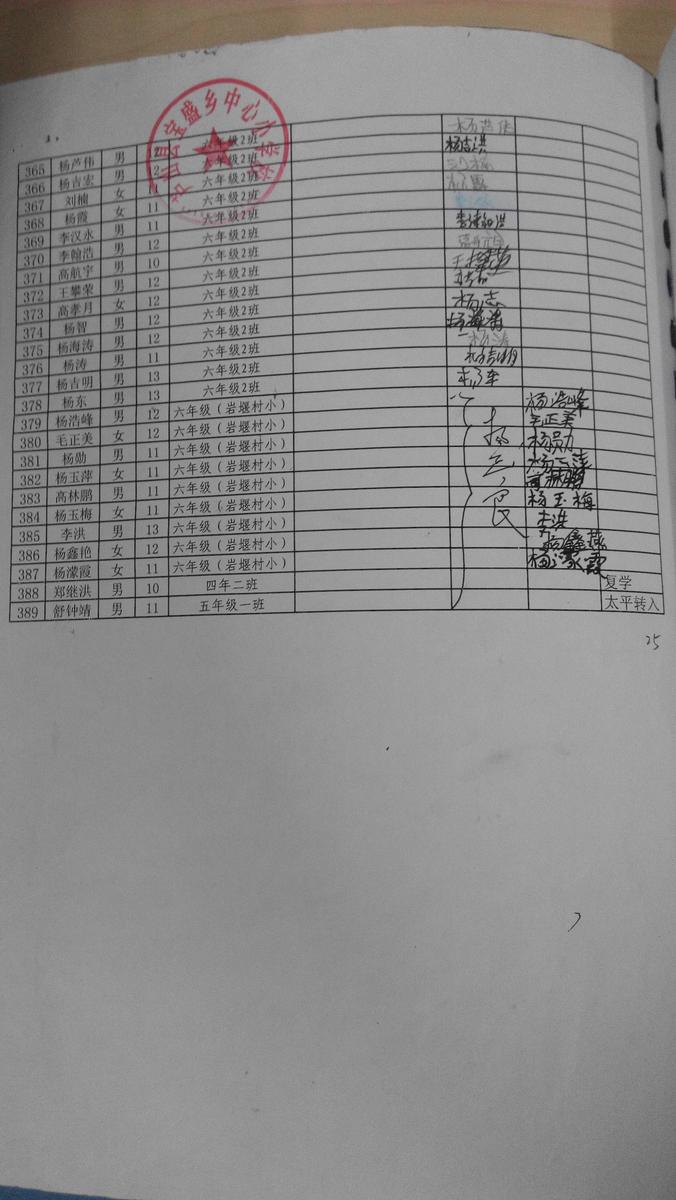 宝盛乡中心小学校
365 杨芦伟 男 12 六年级2班
366 杨吉宏 男 12 六年级2班 杨吉洪
367 刘楠 女 11 六年级2班
368 杨霞 女 11 六年级2班
369 李汉永 男 11 六年级2班
370 李翰浩 男 12 六年级2班
371 高航宇 男 10 六年级2班
372 王攀荣 男 12 六年级2班
373 高孝月 女 12 六年级2班
374 杨智 男 12 六年级2班 杨志
375 杨海涛 男 12 六年级2班 杨海涛
376 杨涛 男 11 六年级2班 杨涛
377 杨吉明 男 13 六年级2班 杨吉明
378 杨东 男 13 六年级2班
379 杨浩峰 男 12 六年级（岩堰村小） 杨浩峰
380 毛正美 女 12 六年级（岩堰村小） 毛正美
381 杨勋 男 11 六年级（岩堰村小） 杨勋
382 杨玉萍 女 11 六年级（岩堰村小） 杨玉萍
383 高林鹏 男 11 六年级（岩堰村小） 高林鹏
384 杨玉梅 女 11 六年级（岩堰村小） 杨玉梅
385 李洪 男 13 六年级（岩堰村小） 李洪
386 杨鑫艳 女 12 六年级（岩堰村小）
387 杨濛霞 女 11 六年级（岩堰村小） 杨濛霞
388 郑继洪 男 10 四年二班 复学
389 舒钟靖 男 11 五年级一班 太平转入
25